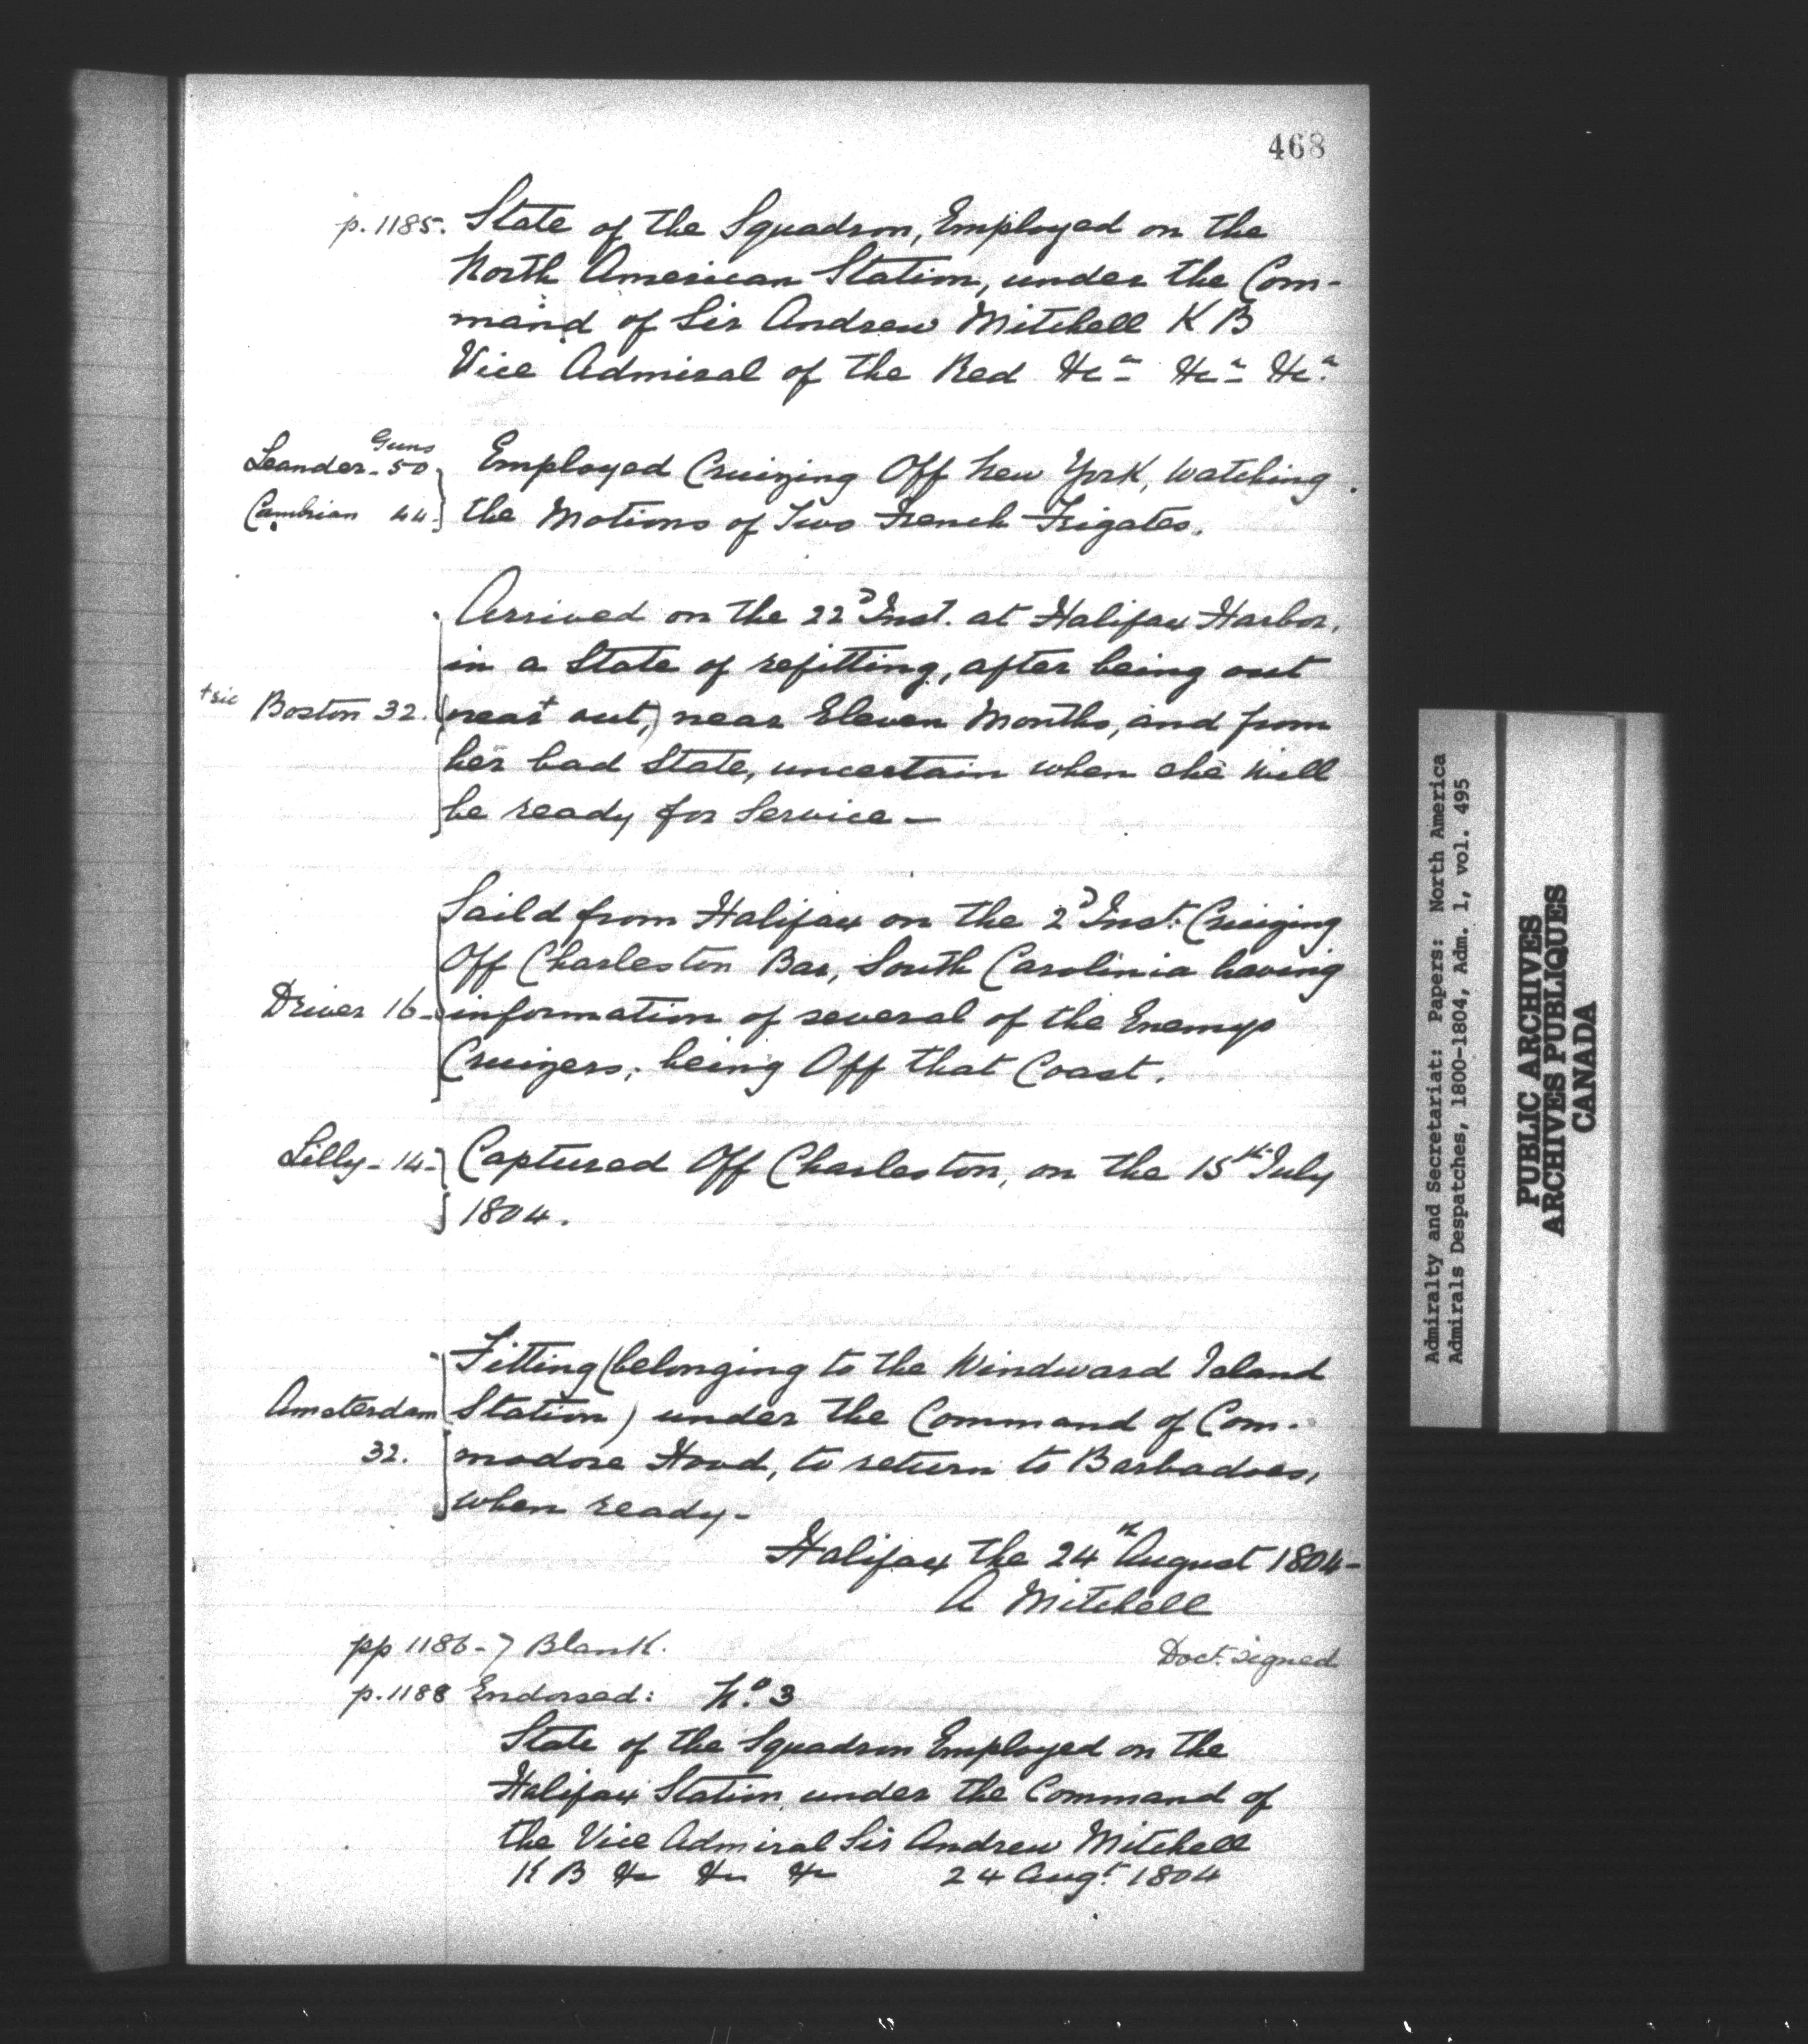 468
p. 1185. State of the Squadron, Employed on the
North American Station, under the Com-
mand of Sir Andrew Mitchell K B
Vice Admiral of the Red &c.a &c.a &c.a
Guns
Leander - 50 } Employed Cruizing Off New York, watching
Cambrian 44 } the Motions of Two French Frigates.
Arrived on the 22d Inst. at Halifax Harbor,
in a State of refitting, after being out
+sic Boston 32. (near+ out,) near Eleven Months, and from
her bad State, uncertain when she will
be ready for Service —
Saild from Halifax on the 2d Inst. Cruizing
Off Charleston Bar, South Carolinia having
Driver 16 - information of several of the Enemys
Cruizers, being Off that Coast.
Lilly - 14 - } Captured Off Charleston, on the 15th July
} 1804.
Fitting (belonging to the Windward Island
Amsterdam Station) under the Command of Com-
32. modore Hood, to return to Barbadoes,
when ready -
Halifax the 24th August 1804 -
A Mitchell
pp 1186-7 Blank.
Doct. signed
p. 1188 Endorsed: No. 3
State of the Squadron Employed on the
Halifax Station under the Command of
the Vice Admiral Sir Andrew Mitchell
K B &c &c &c 24 Augt. 1804
Admiralty and Secretariat: Papers: North America
Admirals Despatches, 1800-1804, Adm. 1, vol. 495
PUBLIC ARCHIVES
ARCHIVES PUBLIQUES
CANADA